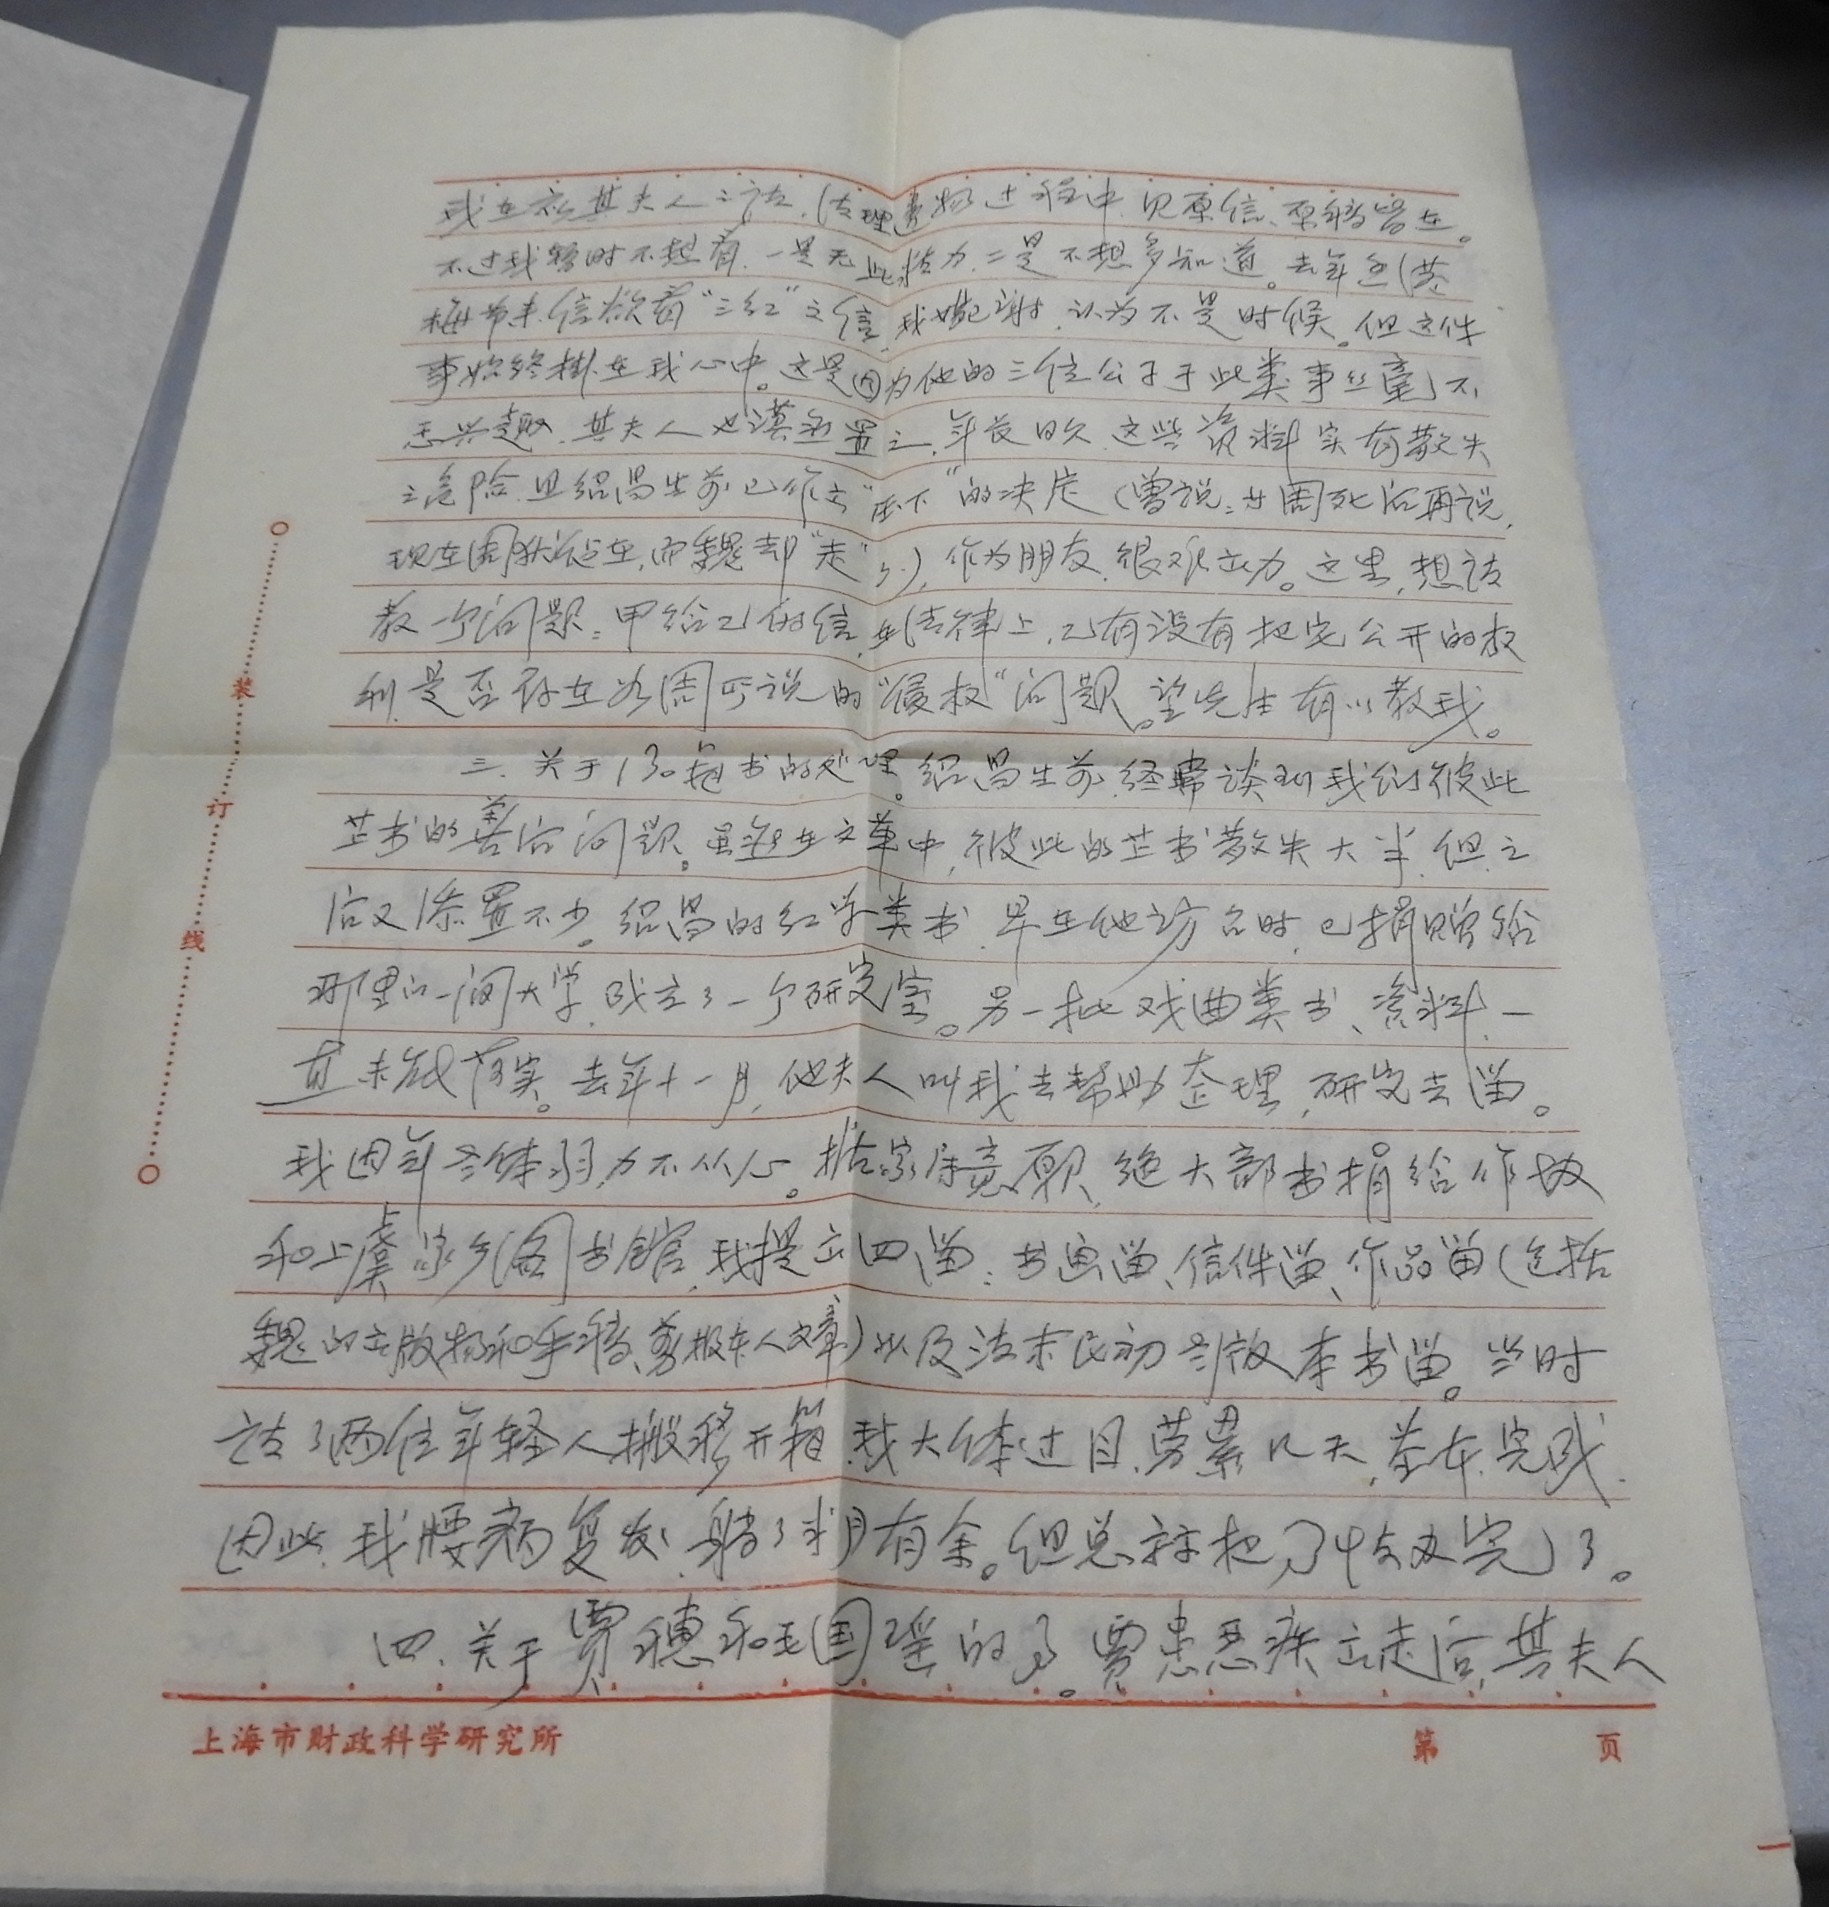 我在应其夫人之请，清理遗物过程中，见原信、原稿皆在。
不过我暂时不想看，一是无此精力，二是不想多知道。去年
梅节来信欲看“三红”之信，我婉谢，认为不是时候。但这件
事始终掛在我心中。这是因为他的三位公子于此类事丝毫不
感兴趣，其夫人也漠然置之，年长日久，这些资料实有散失
之危险，且绍昌生前已作出“压下”的决定（曾说：等周死后再说，
现在周犹健在，而魏却“走”了），作为朋友，很难出力。这里，想请
教一个问题：甲给乙的信，在法律上，乙有没有把它公开的权
利，是否存在如周所说的“侵权”问题。望先生有以教我。
三、关于130箱书的处理。绍昌生前，经常谈到我们彼此
芷书的善后问题。虽然在文革中，彼此的芷书散失大半，但之
后又添置不少。绍昌的红学类书，早在他访台时，已捐赠给
那里的一间大学，成立了一个研究室。另一批戏曲类书、资料，一
直未能落实。去年十一月，他夫人叫我去帮助整理，研究去留。
我因年老体弱，力不从心。据家属意愿，绝大部书捐给作协
和上虞家乡图书馆，我提出四留：书画留、信件留、作品留（包括
魏的出版物和手稿、剪报本人文章）以及清末民初老版本书留。当时
请了两位年轻人搬移开箱，我大体过目，劳累几天，基本完成。
因此，我腰病复发，躺了半月有余。但总算把事情办完了。
四、关于贾穗和毛国瑶的事。贾患恶疾亡走后，其夫人
装
订
线
上海市财政科学研究所
第 页